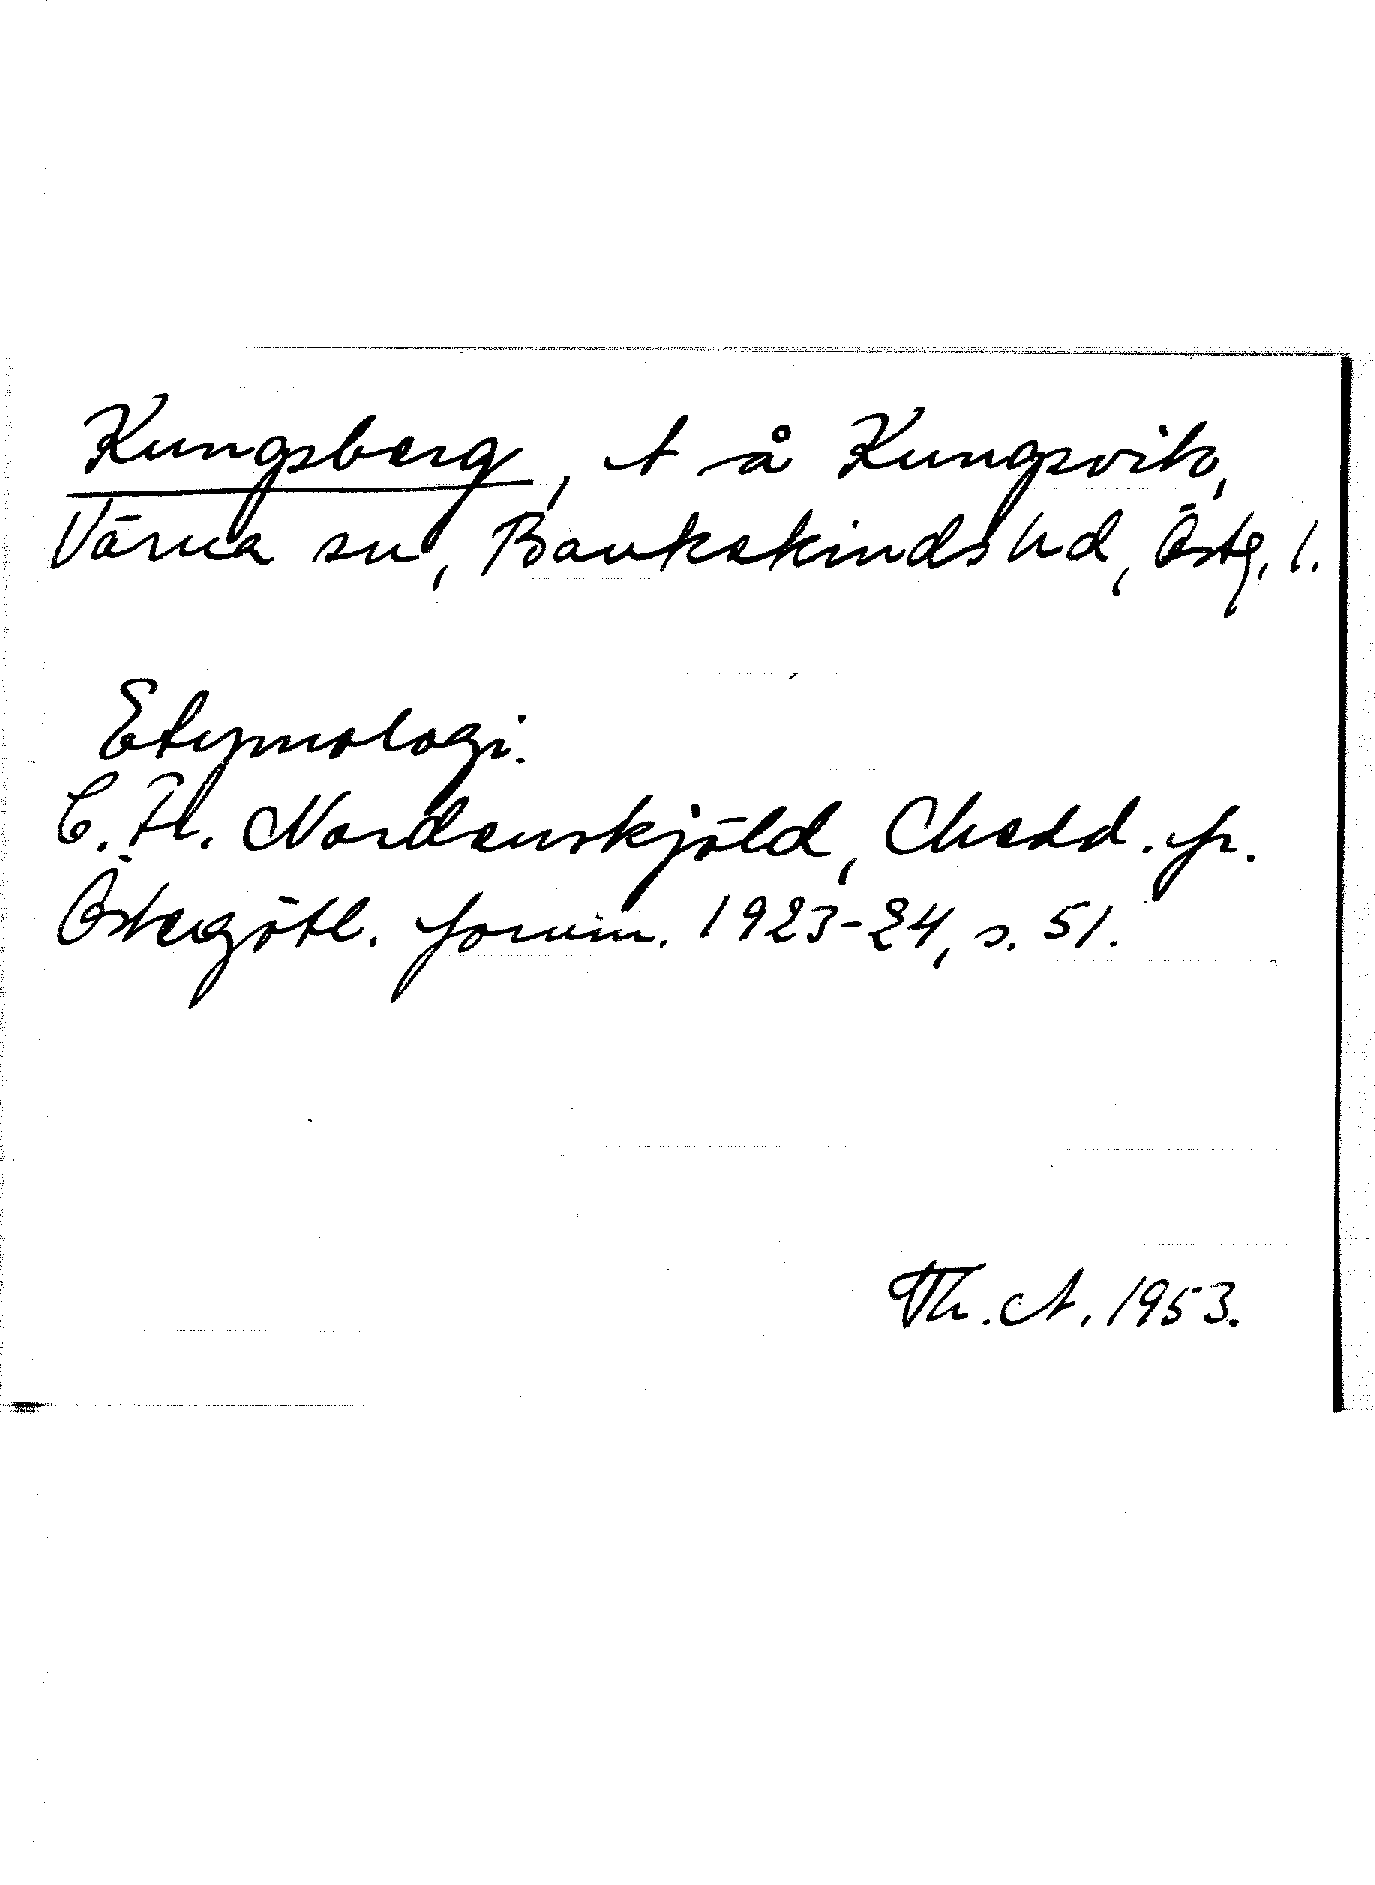 Kungsberg, t å Kungsvik,
Värna sn, Bankekinds hd, Östg. l.
Etymologi.
C. Fr. Nordenskjöld, Medd. fr.
Östergötl. fornm. 1923-24, s. 51.
Th. A. 1953.